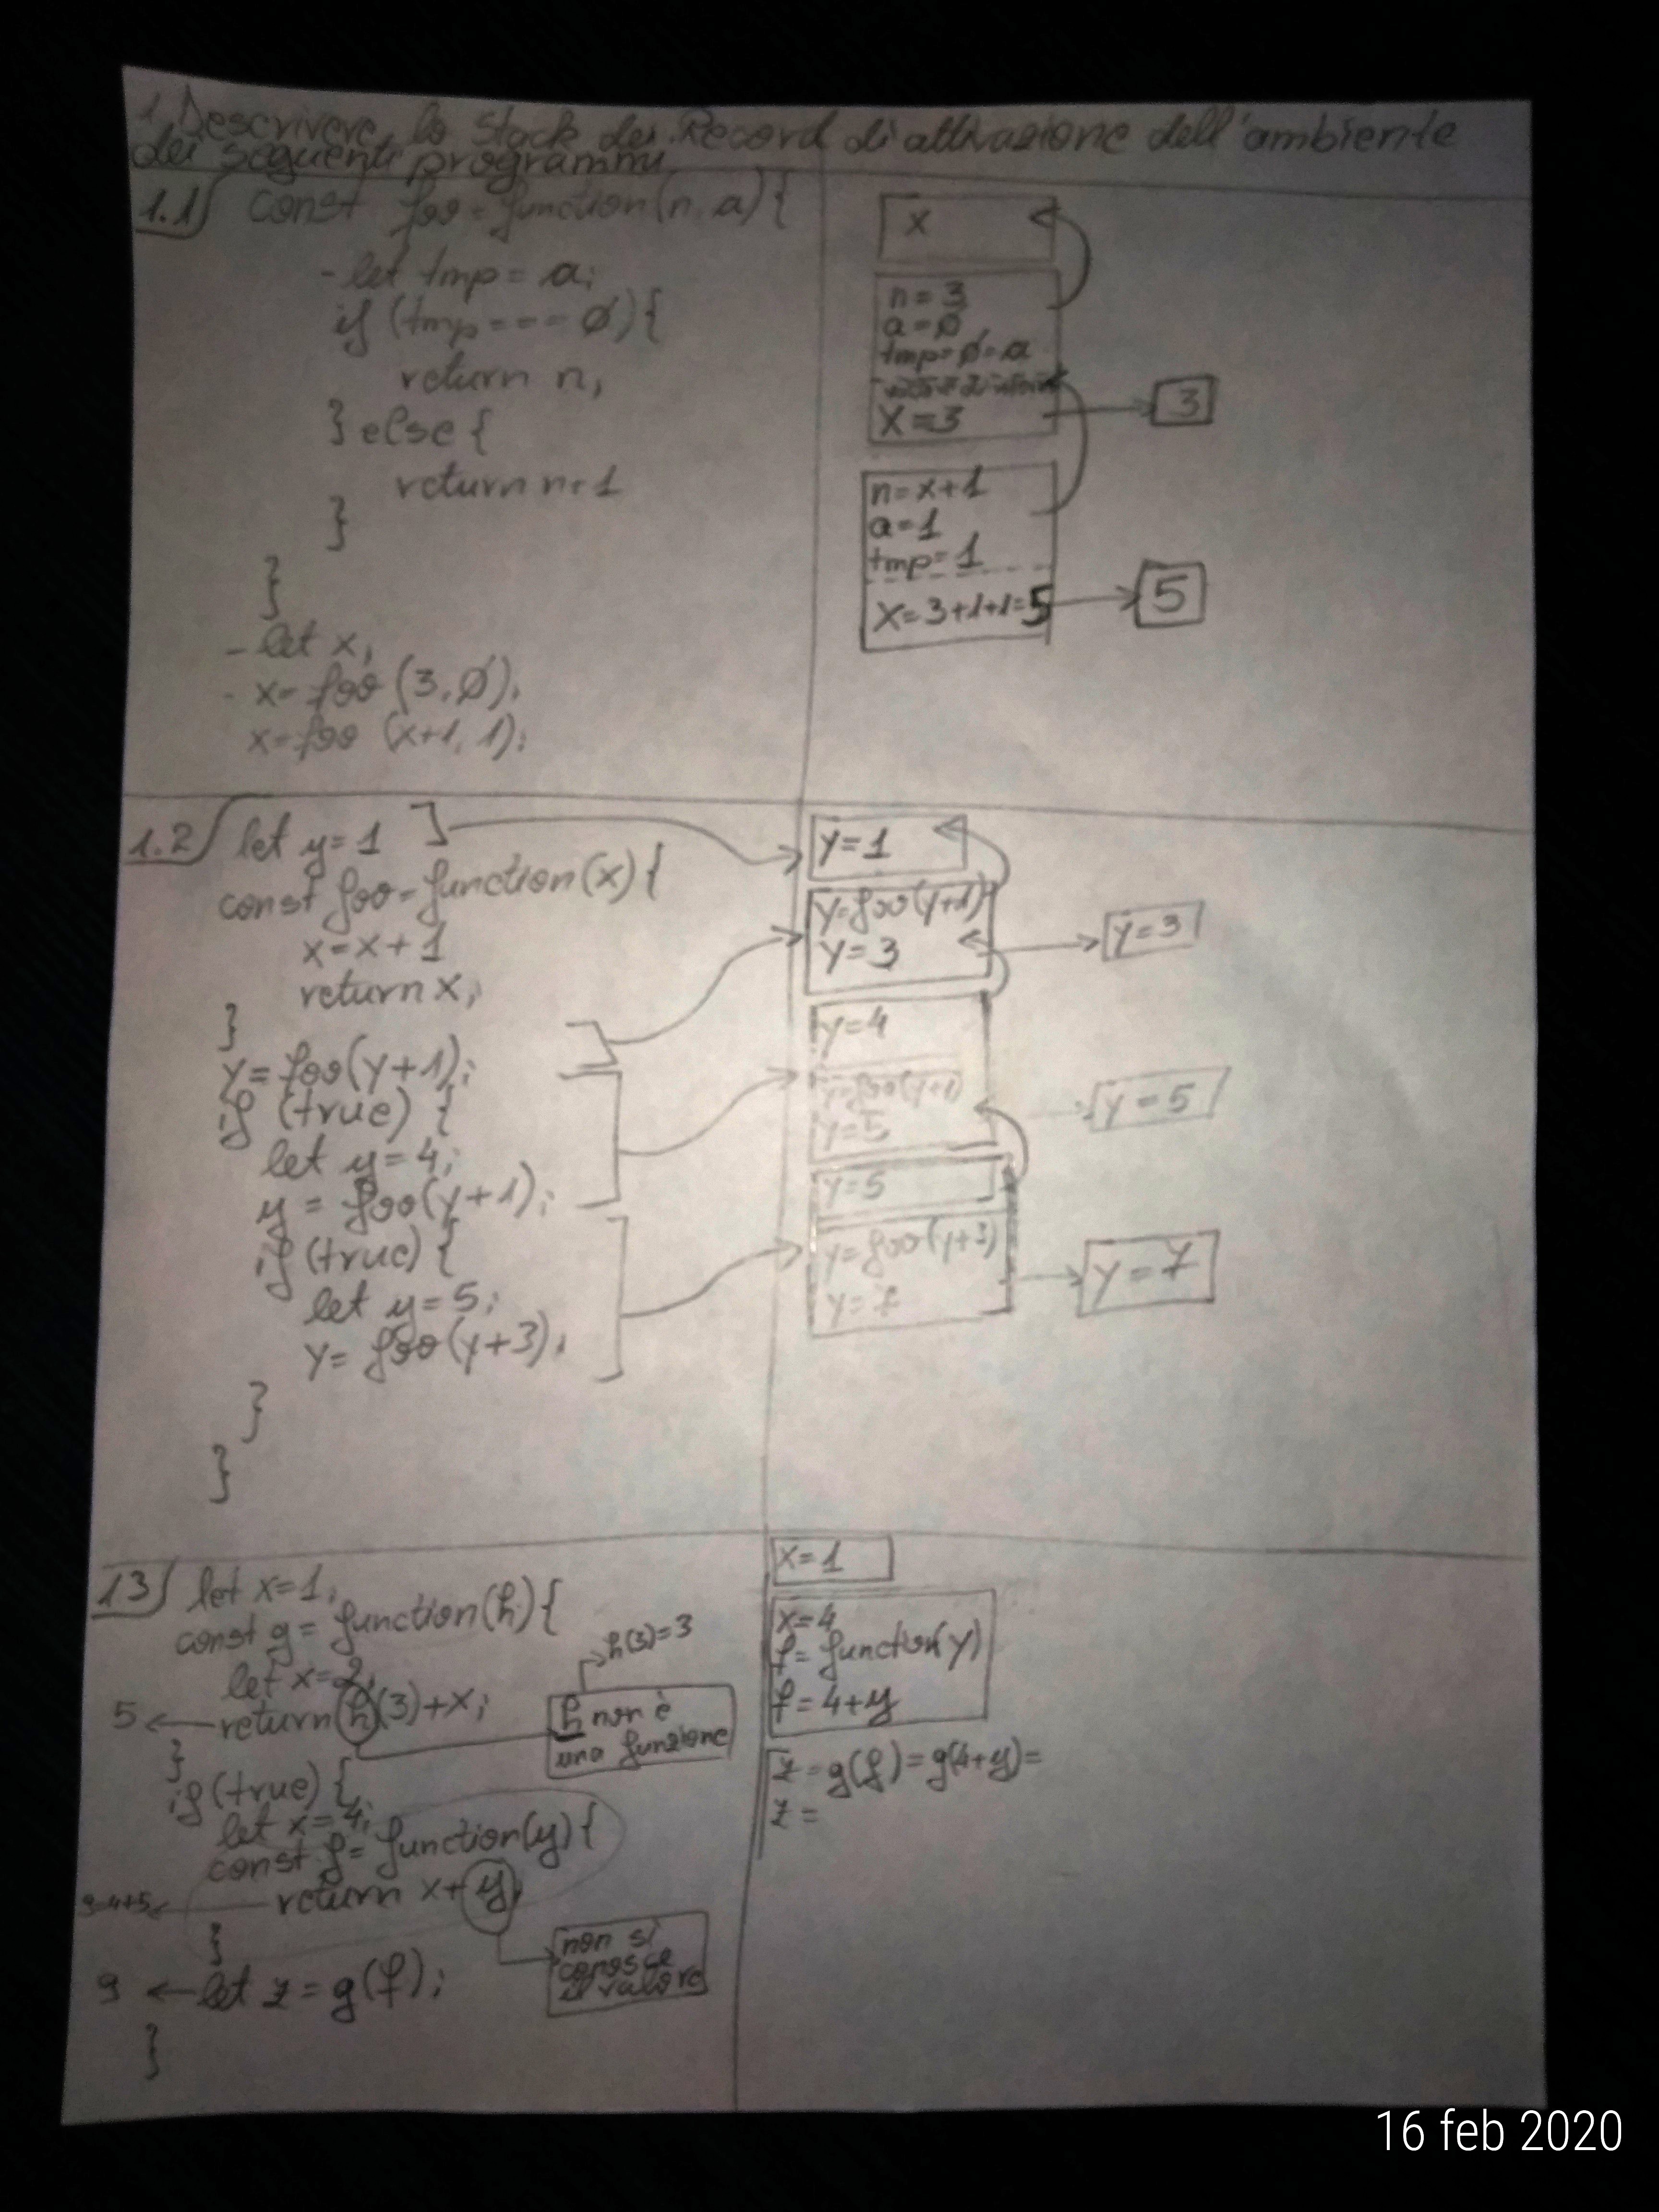 1. Descrivere lo Stack dei Record di attivazione dell'ambiente
dei seguenti programmi
1.1) const foo = function(n, a) {
- let tmp = a;
if (tmp === 0) {
return n;
} else {
return n+1
}
}
- let x;
- x = foo (3, 0);
x = foo (x+1, 1);
x
n = 3
a = 0
tmp = 0 = a
X = 3
3
n = x+1
a = 1
tmp = 1
X = 3+1+1 = 5
5
1.2) let y = 1
const foo = function(x) {
x = x + 1
return x;
}
y = foo(y+1);
if (true) {
let y = 4;
y = foo(y+1);
if (true) {
let y = 5;
y = foo(y+3);
}
}
y = 1
y = foo(y+1)
y = 3
y = 3
y = 4
y = foo(y+1)
y = 5
y = 5
y = foo(y+3)
y = 7
y = 7
1.3) let x = 1;
const g = function(h) {
let x = 2;
5 ← return h(3) + x;
}
if (true) {
let x = 4;
const f = function(y) {
9=4+5 ← return x + y;
}
9 ← let z = g(f);
}
h(3) = 3
h non è
una funzione
non si
conosce
il valore
x = 1
x = 4
f = function(y)
f = 4 + y
z = g(f) = g(4+y) =
z =